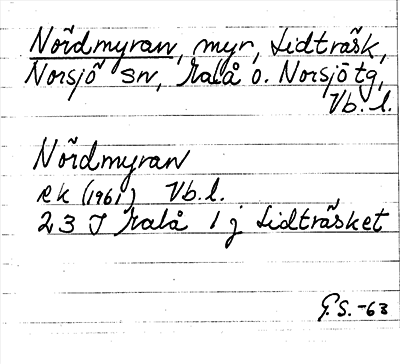 Nördmyran, myr, Lidträsk,
Norsjö sn, Malå o. Norsjö tg,
Vb. l.
Nördmyran
RK (1961) Vb. l.
23 J Malå 1 j Lidträsket
G.S. -63